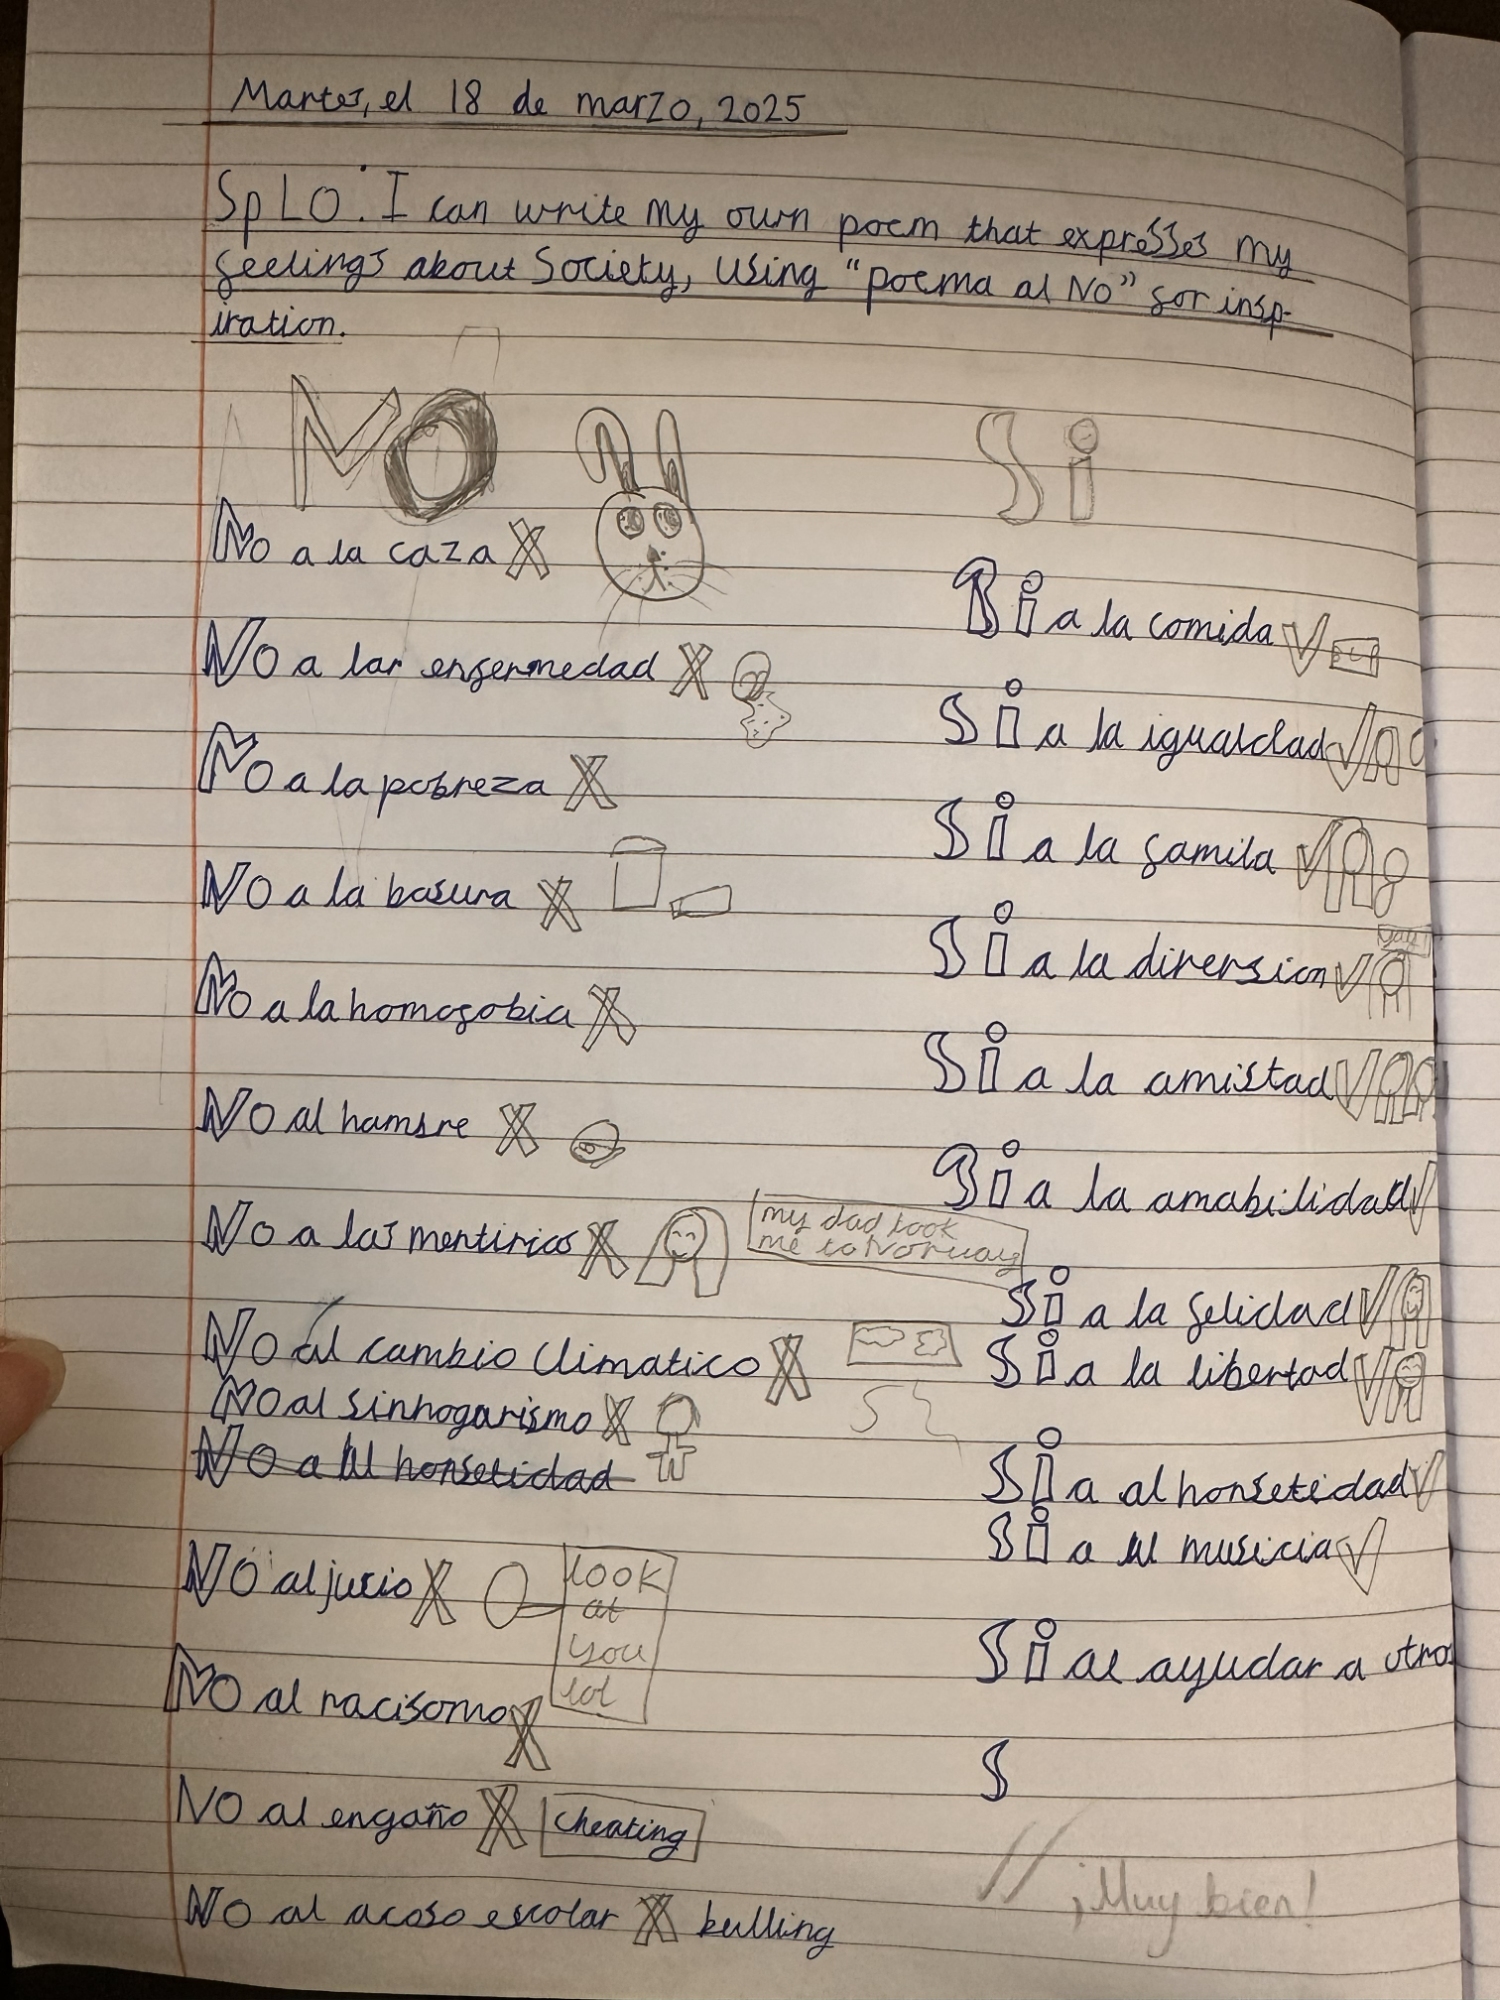 Martes, el 18 de marzo, 2025
SpLO: I can write my own poem that expresses my
feelings about Society, using "poema al No" for insp-
iration.
NO
Si
No a la caza X
Si a la comida
No a lar enfermedad X
Si a la igualdad
No a la pobreza X
Si a la famila
No a la basura X
Si a la diversion
No a la homofobia X
Si a la amistad
No al hambre X
Si a la amabilidad
No a las mentirias X
my dad took
me to Norway
Si a la felidad
No al cambio climatico X
Si a la libertad
No al sinhogarismo X
No a al honsetidad
Si a al honsetidad
Si a al musicia
No al jucio X
look
at
you
lol
Si al ayudar a otros
No al racisomo X
S
No al engaño X cheating
¡Muy bien!
No al acoso escolar X bulling